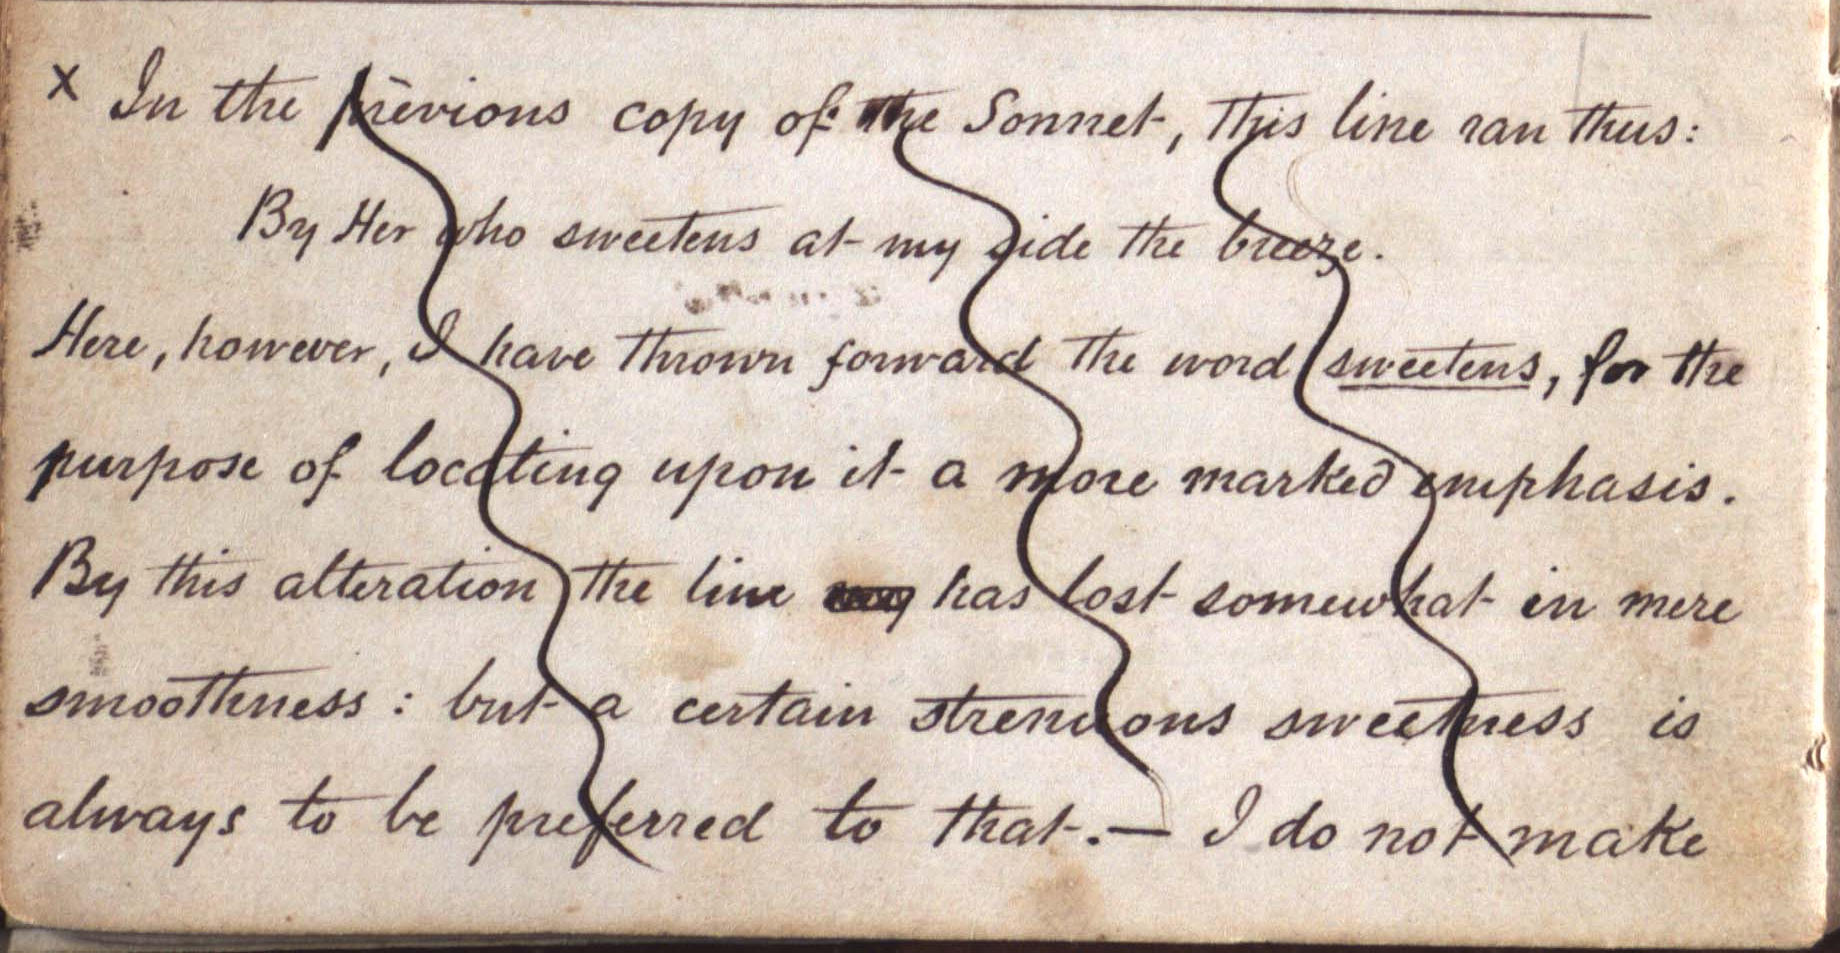 x In the previous copy of the Sonnet, this line ran thus:
By Her who sweetens at my side the breeze.
Here, however, I have thrown forward the word sweetens, for the
purpose of locating upon it a more marked emphasis.
By this alteration the line has lost somewhat in mere
smoothness: but a certain strenuous sweetness is
always to be preferred to that. — I do not make